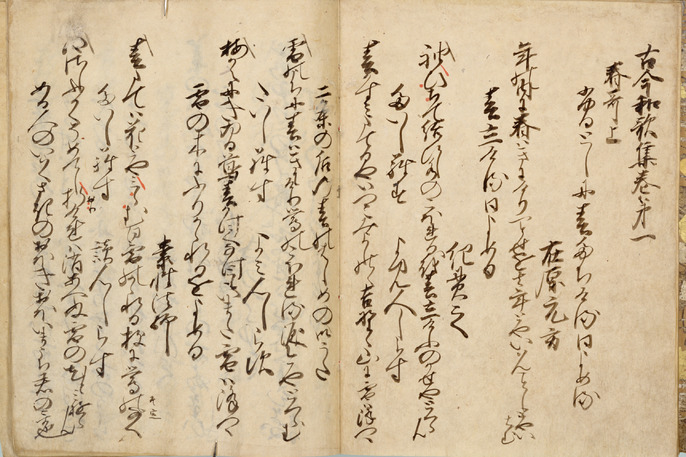 古今和歌集巻第一
春哥上
ふるとしに春たちける日よめる
在原元方
年の内に春はきにけり一とせをこそとやいはんことしとやいはむ
春立ける日よめる
紀貫之
袖ひちて結ひし水のこほれるを春立けふの風やとくらん
たいしらす よみ人しらす
春かすみたてるやいつこみよしのゝ吉野の山に雪は降つゝ
二条の后の春のはしめの御うた
雪の内に春はきにけり鶯のこほれる泪いまやとくらむ
たいしらす よみ人しらす
梅かえにきゐる鶯春かけてなけともいまた雪は降つゝ
雪の木にふりかゝれるをよめる
素性法師
春たては花とやみらむ白雪のかゝれる枝に鶯のなく
たいしらす 読人しらす
心さしふかくそめてし折けれは消あへぬ雪の花と見ゆらん
ある人のいはくさきのおほきおほいまうち君の哥也